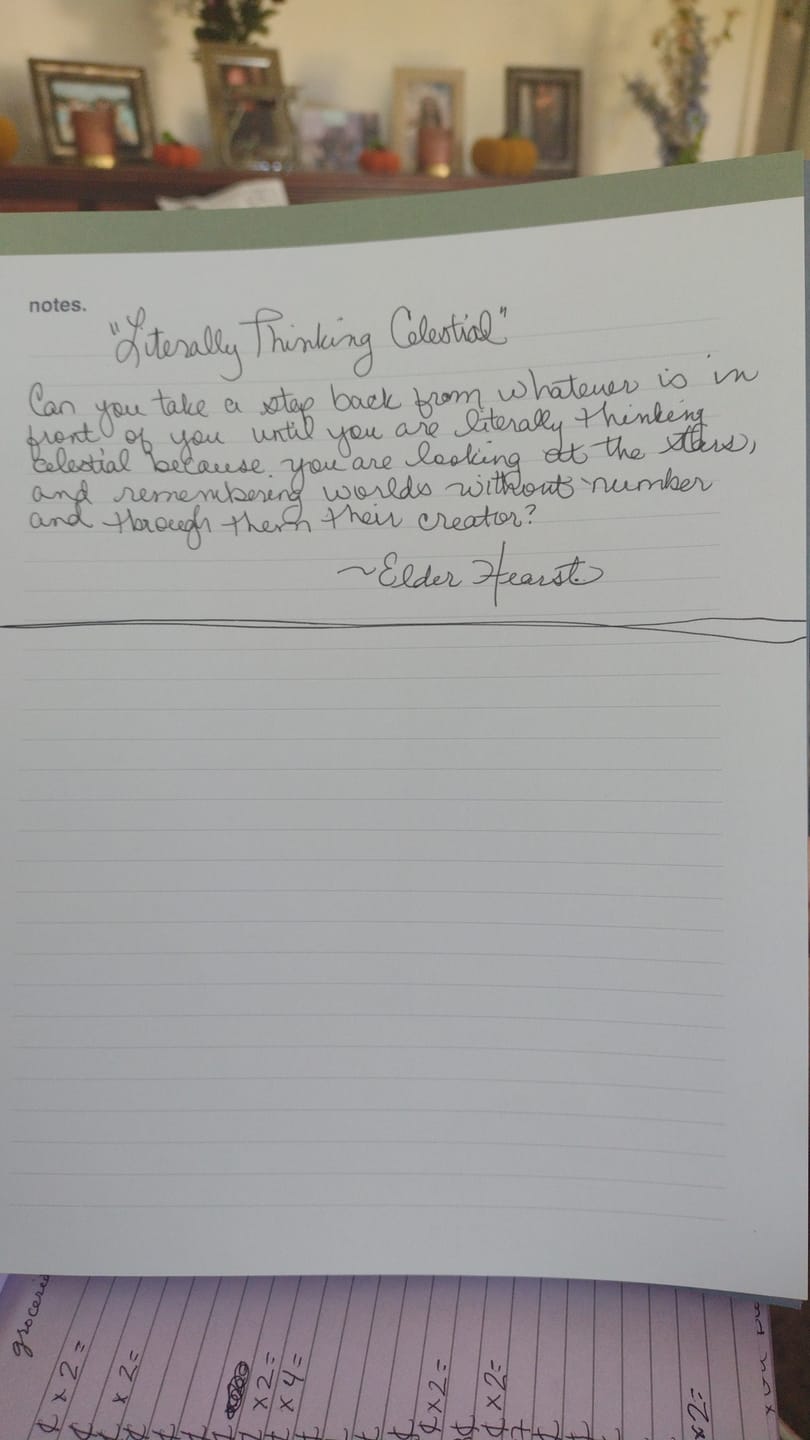 notes.
"Literally Thinking Celestial"
Can you take a step back from whatever is in
front of you until you are literally thinking
celestial because you are looking at the stars,
and remembering worlds without number
and through them their creator?
~Elder Hearst
groceri
¢ x 2 =
x 2 =
x 2 =
x 4 =
¢ x 2 =
¢ x 2 =
x 2 =